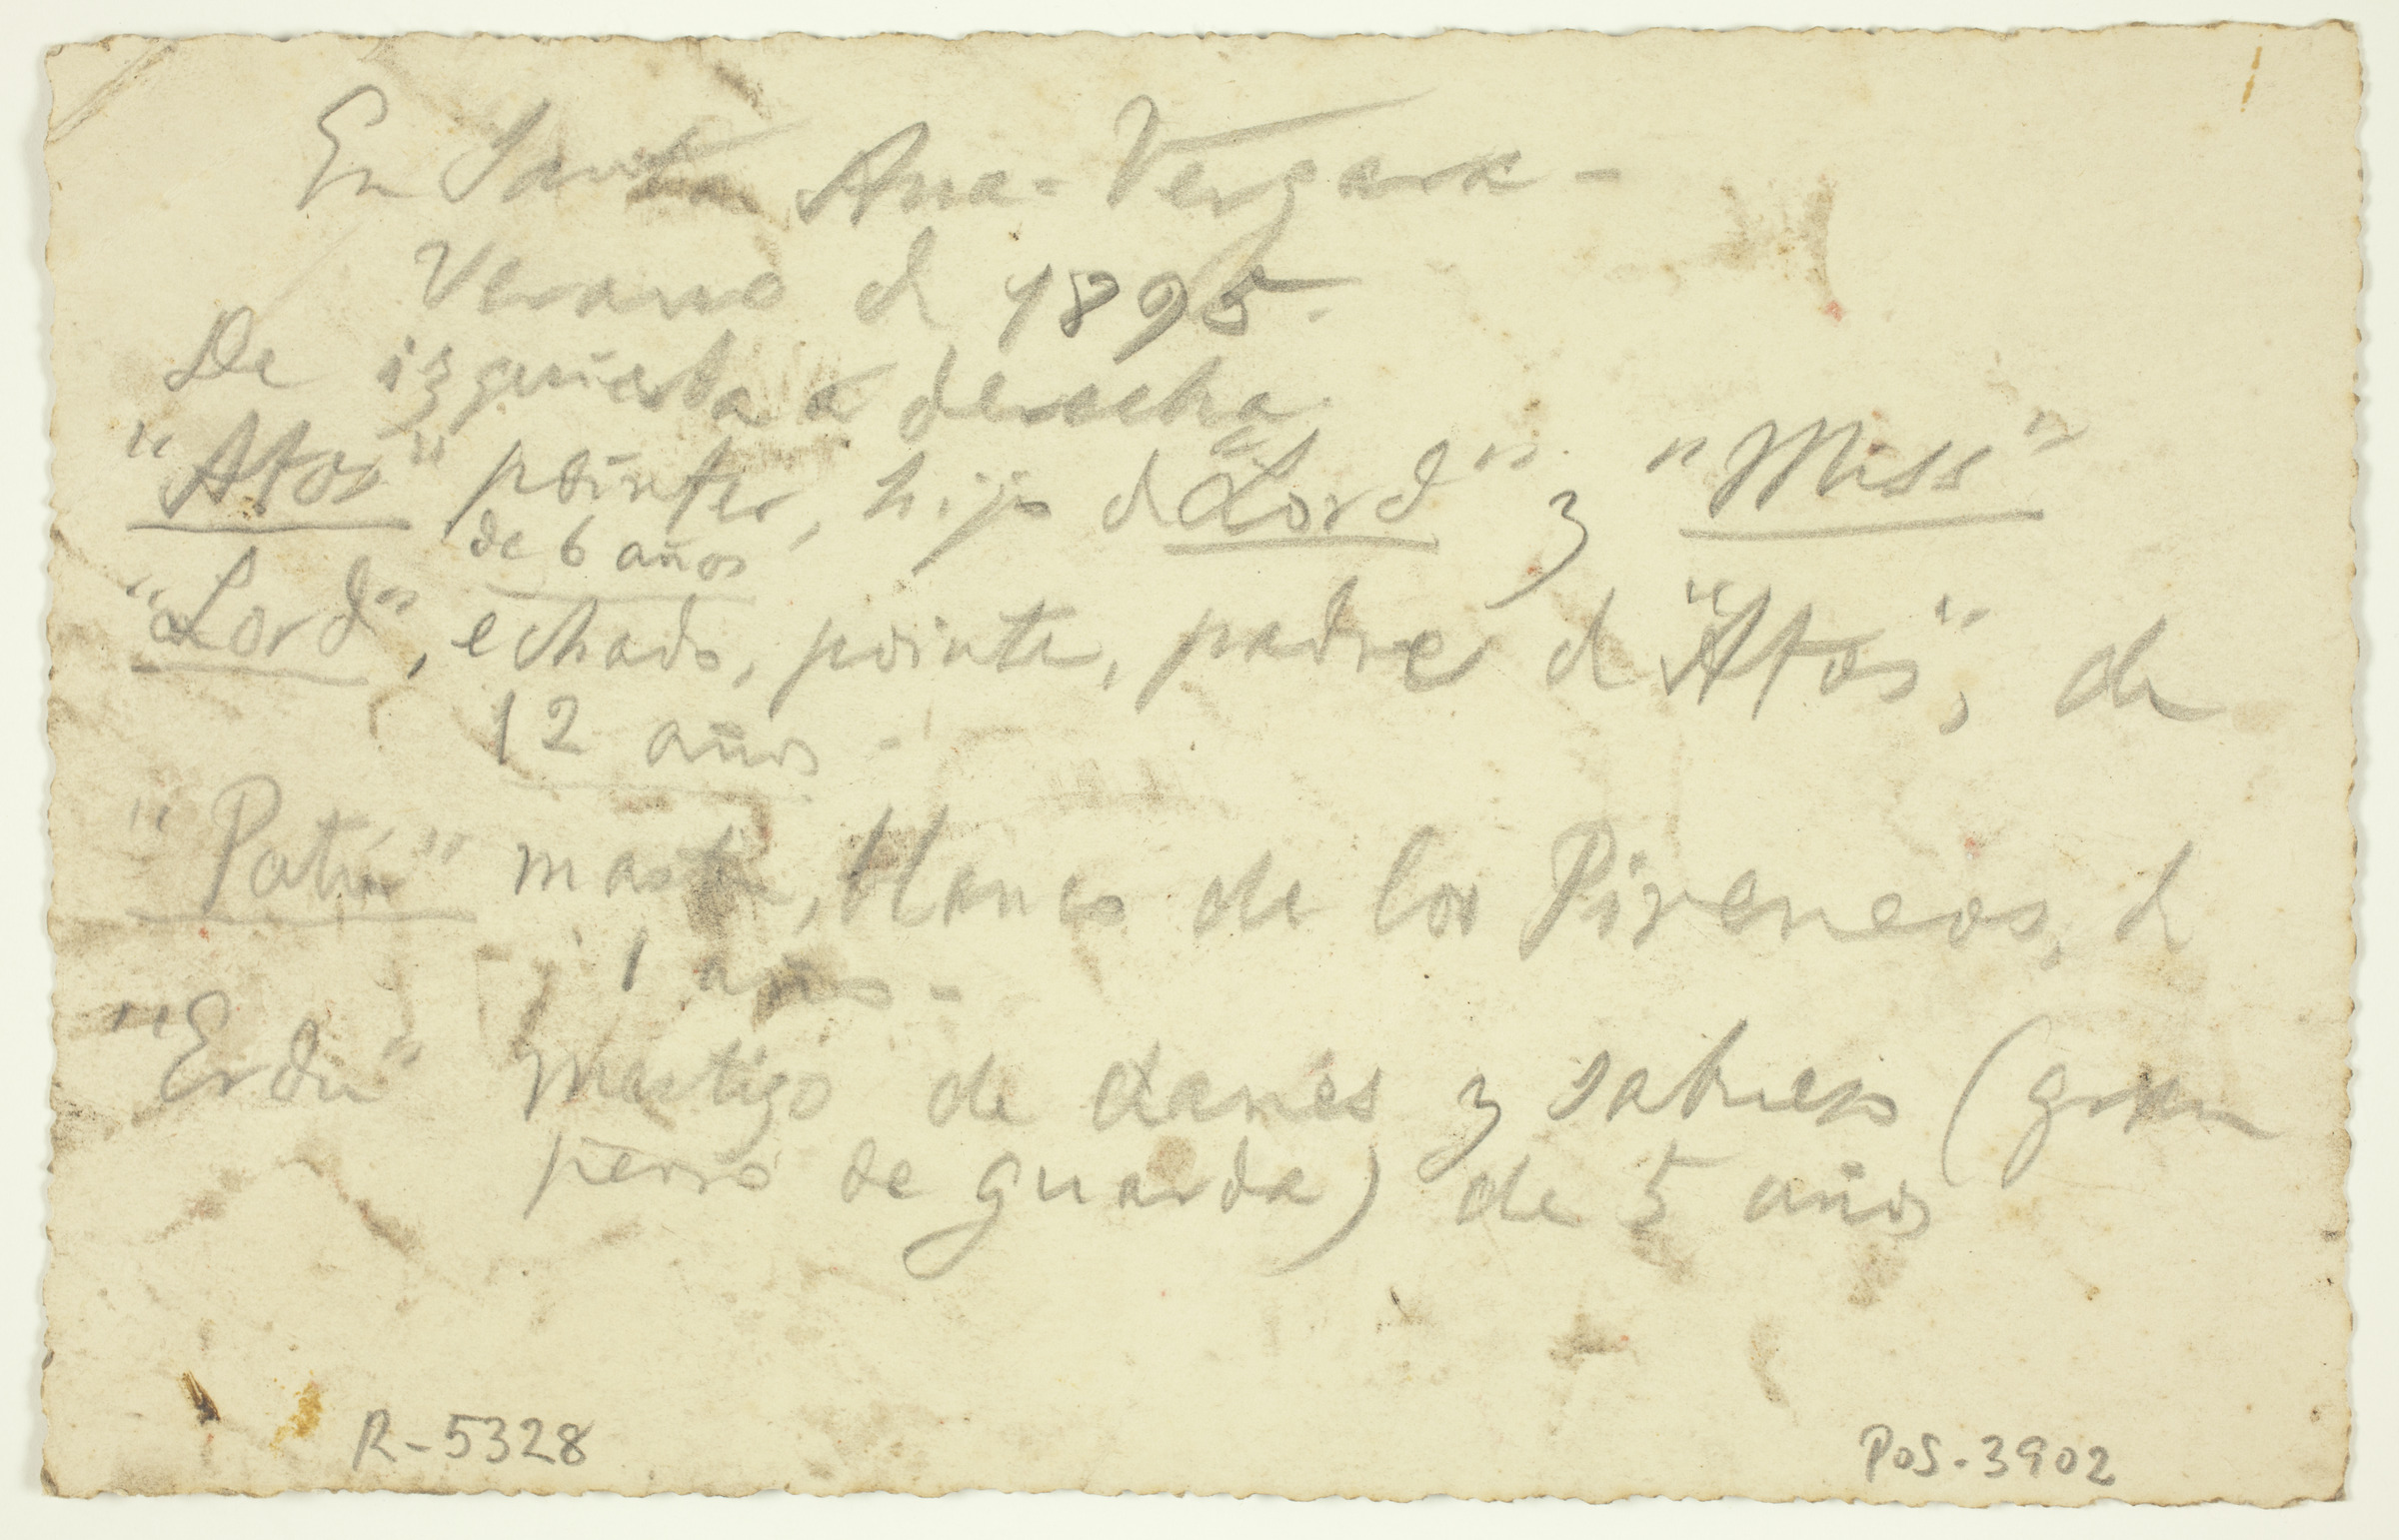 En Santa Ana - Vergara -
Verano de 1895.
De izquierda a derecha.
"Atos" pointer, hijo de "Lord" y "Miss"
de 6 años
"Lord", echado, pointer, padre de "Atos", de
12 años -
"Patín" mastín, blanco de los Pireneos, de
1 años -
"Erdu" mestizo de danés y sabueso (gran
perro de guarda) de 5 años
R-5328
POS-3902